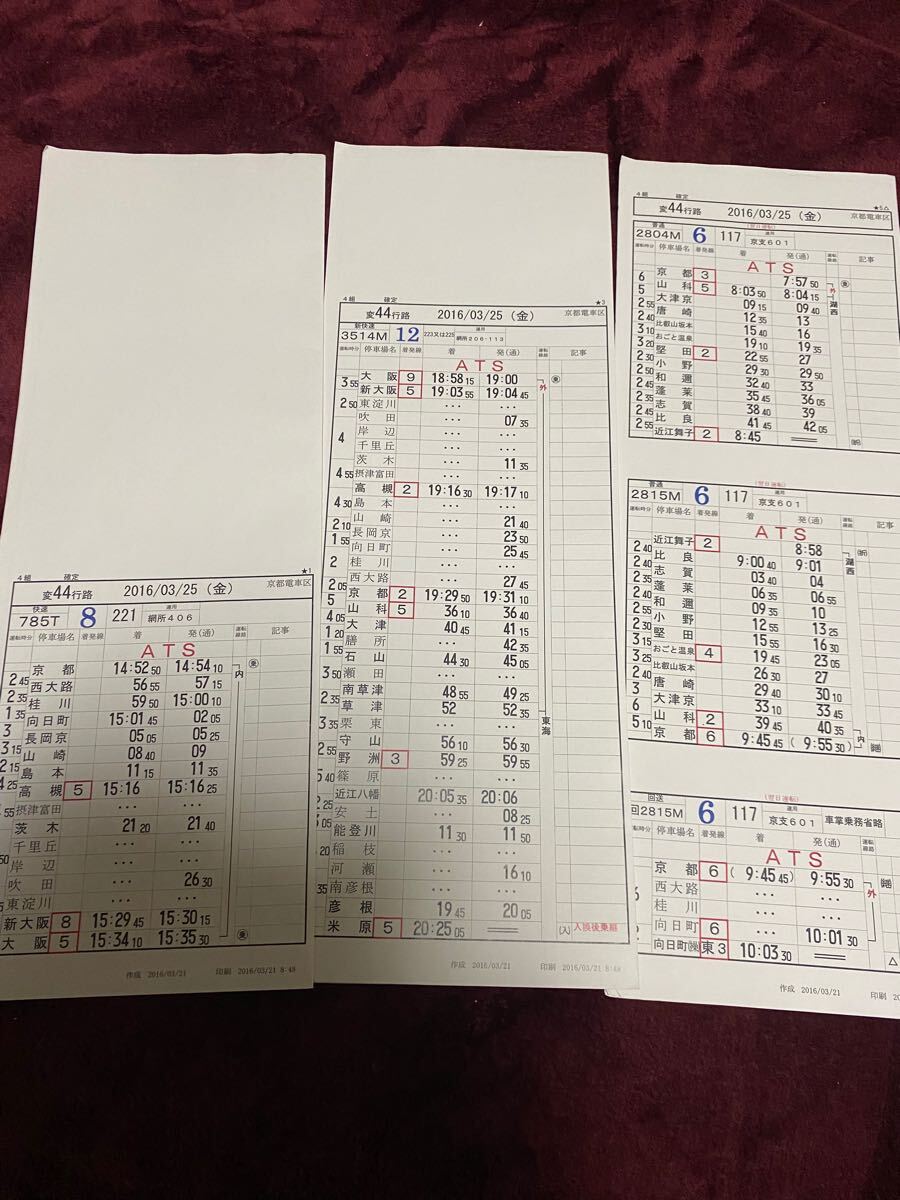 4組 確定 ★1
変44行路 2016/03/25 (金) 京都電車区
快速 運用
785T 8 221 網所406
運転時分 停車場名 着発線 着 発(通) 運転線路 記事
ATS
京都 14:52 50 14:54 10 内
2 45
西大路 56 55 57 15
2 35
桂川 59 50 15:00 10
1 35
向日町 15:01 45 02 05
3
長岡京 05 05 05 25
3 15
山崎 08 40 09
2 15
島本 11 15 11 35
4 25
高槻 5 15:16 15:16 25
摂津富田 ・・・ ・・・
茨木 21 20 21 40
千里丘 ・・・ ・・・
岸辺 ・・・ ・・・
吹田 ・・・ 26 30
東淀川 ・・・ ・・・
新大阪 8 15:29 45 15:30 15
大阪 5 15:34 10 15:35 30
作成 2016/03/21 印刷 2016/03/21 8:48
4組 確定 ★3
変44行路 2016/03/25 (金) 京都電車区
新快速 運用
3514M 12 223又は225 網所206-113
運転時分 停車場名 着発線 着 発(通) 運転線路 記事
ATS
大阪 9 18:58 15 19:00 外
3 55
新大阪 5 19:03 55 19:04 45
東淀川 ・・・ ・・・
2 50
吹田 ・・・ 07 35
岸辺 ・・・ ・・・
4
千里丘 ・・・ ・・・
茨木 ・・・ 11 35
4 55
摂津富田 ・・・ ・・・
高槻 2 19:16 30 19:17 10
4 30
島本 ・・・ ・・・
山崎 ・・・ 21 40
2 10
長岡京 ・・・ 23 50
1 55
向日町 ・・・ 25 45
2
桂川 ・・・ ・・・
西大路 ・・・ 27 45
2 05
京都 2 19:29 50 19:31 10
5
山科 5 36 10 36 40
4 05
大津 40 45 41 15
1 20
膳所 ・・・ 42 35
1 55
石山 44 30 45 05
3 50
瀬田 ・・・ ・・・
南草津 48 55 49 25
2 35
草津 52 52 35
東海
3 35
栗東 ・・・ ・・・
守山 56 10 56 30
2 55
野洲 3 59 25 59 55
5 40
篠原 ・・・ ・・・
近江八幡 20:05 35 20:06
安土 ・・・ 08 25
能登川 11 30 11 50
稲枝 ・・・ ・・・
河瀬 ・・・ 16 10
南彦根 ・・・ ・・・
彦根 19 45 20 05
米原 5 20:25 05 ══ (入) 入換後乗継
作成 2016/03/21 印刷 2016/03/21 8:48
4組 確定 ★5△
変44行路 2016/03/25 (金) 京都電車区
普通 (翌日運転) 運用
2804M 6 117 京支601
運転時分 停車場名 着発線 着 発(通) 運転線路 記事
ATS
京都 3 7:57 50 外
6
山科 5 8:03 50 8:04 15 湖西
5
大津京 09 15 09 40
2 55
唐崎 12 35 13
2 40
比叡山坂本 15 40 16
3 10
おごと温泉 19 10 19 35
3 20
堅田 2 22 55 27
2 30
小野 29 30 29 50
2 50
和邇 32 40 33
2 45
蓬莱 35 45 36 05
2 35
志賀 38 40 39
2 45
比良 41 45 42 05
2 55
近江舞子 2 8:45 ══ (折)
普通 (翌日運転) 運用
2815M 6 117 京支601
運転時分 停車場名 着発線 着 発(通) 運転線路 記事
ATS
近江舞子 2 8:58 (折)
湖西
2 40
比良 9:00 40 9:01
2 40
志賀 03 40 04
2 35
蓬莱 06 35 06 55
2 40
和邇 09 35 10
2 55
小野 12 55 13 25
2 30
堅田 15 55 16 30
3 15
おごと温泉 4 19 45 23 05
3 25
比叡山坂本 26 30 27
2 40
唐崎 29 40 30 10
3
大津京 33 10 33 45
5 10
山科 2 39 45 40 35
京都 6 9:45 45 (9:55 30) 内
回送 (翌日運転) 運用
回2815M 6 117 京支601 車掌乗務省略
停車場名 着発線 着 発(通) 運転線路 記事
ATS
京都 6 (9:45 45) 9:55 30
西大路 ・・・ ・・・ 外
桂川 ・・・ ・・・
向日町 6 ・・・ 10:01 30
向日町操 東3 10:03 30 ══ △
作成 2016/03/21 印刷 20